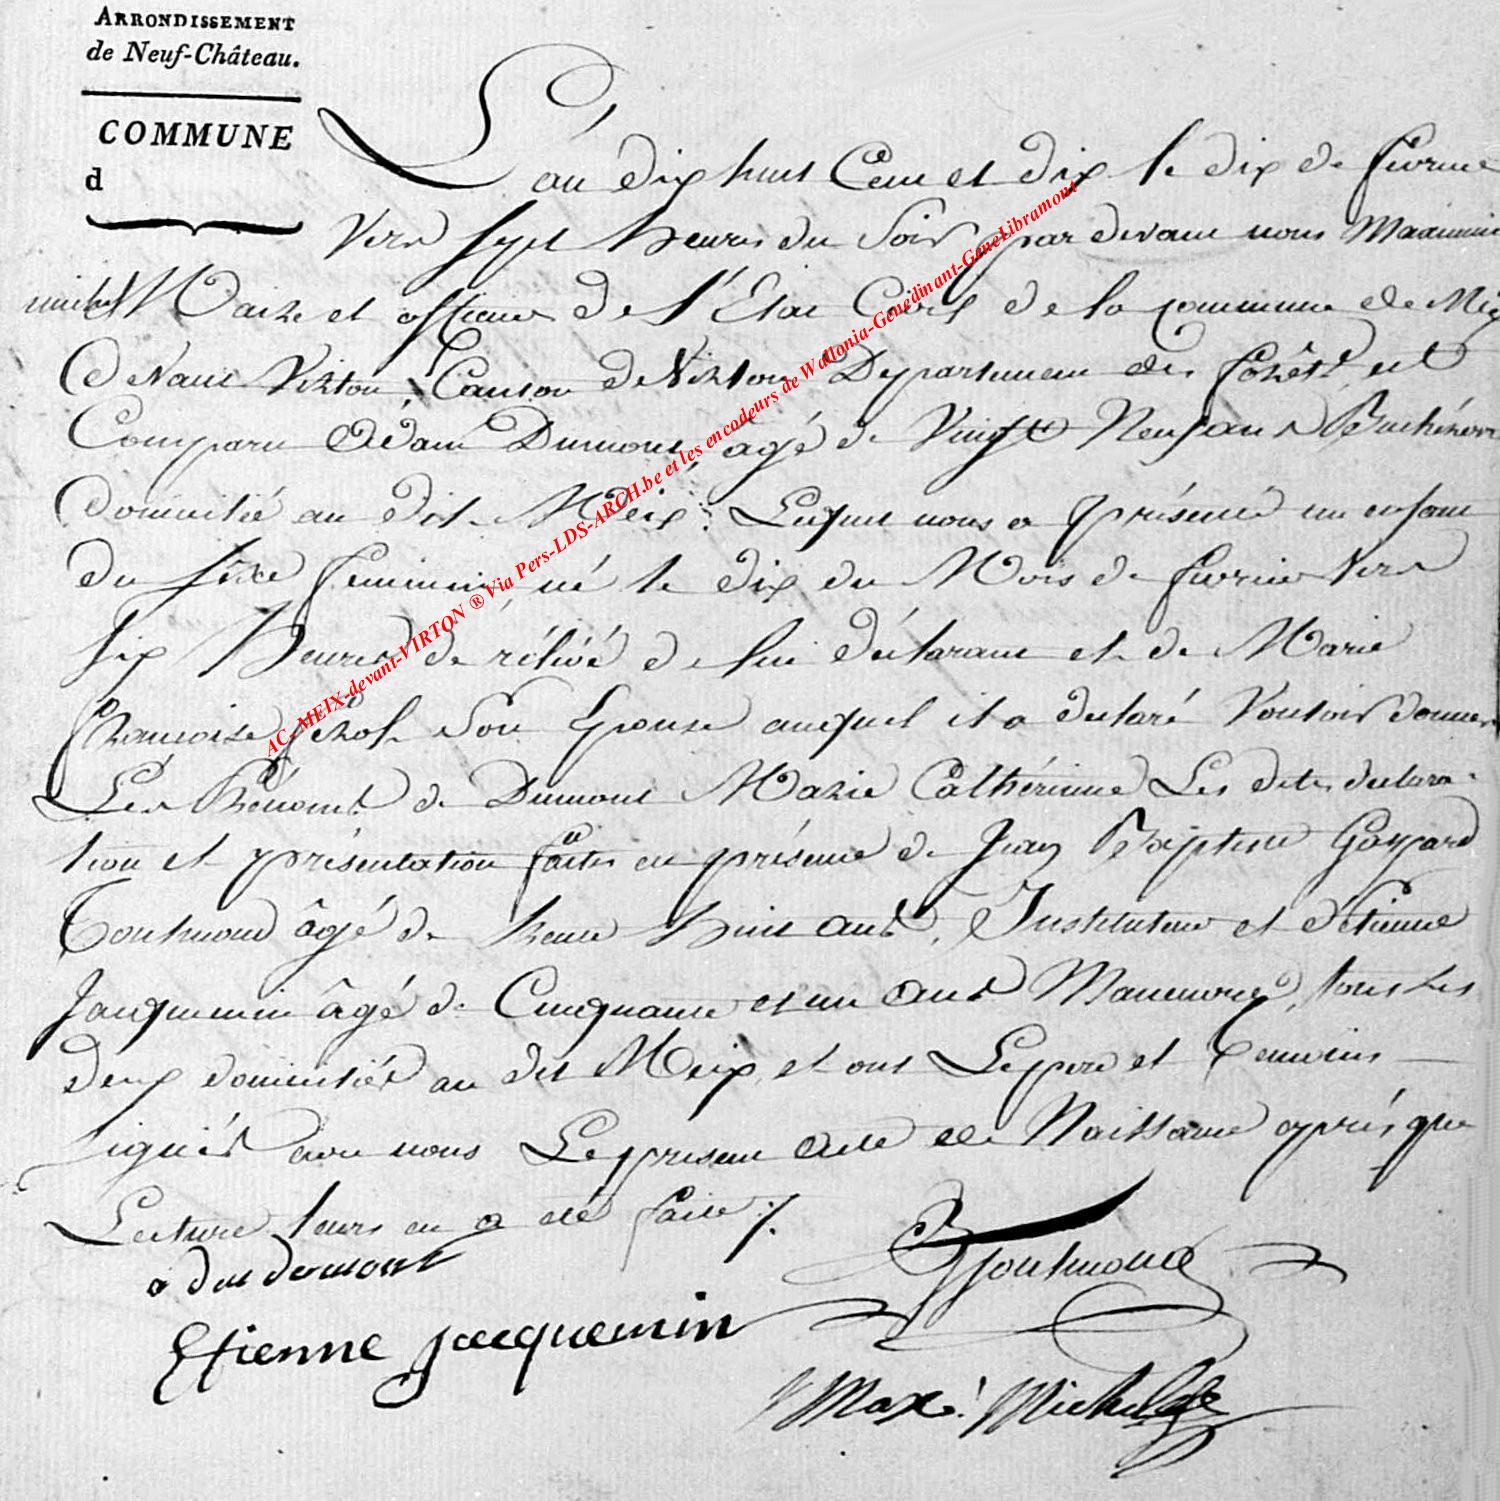 ARRONDISSEMENT
de Neuf-Château.
COMMUNE
d
L'an dix huit Cent et dix le dix de fevrier
Vers sept heures du Soir par devant nous Maximin
michel Maire et officier de l'Etat Civil de la commune de Meix
devant Virton, Canton de Virton Departement des forêts est
Comparu Adam Dumont, âgé de Vingt Neuf ans Bucheron
domicilié au dit Meix. Lequel nous a présenté un enfant
du sexe feminin, né le dix du Mois de fevrier Vers
six heures de rélévé de lui déclarant et de Marie
francoise son Epouse auquel il a declaré Vouloir donner
Les Prénoms de Dumont Marie Cathérinne Les dites declara-
tion et présentation faites en présence de Jean Baptiste Gaspard
âgé de trente huit ans, Instituteur et d'Etienne
Jacquemin âgé de Cinquante et un ans Manoeuvre, tous les
deux domiciliés au dit Meix, et ont Le pere et temoins
signés avec nous Le present acte de Naissance après que
Lecture leurs en a été faite ./.
adam dumont
Etienne jacquemin
Max: Michel
AC-MEIX-devant-VIRTON ® Via Pers-LDS-ARCH.be et les encodeurs de Wallonia-Genedinant-GeneLibramont